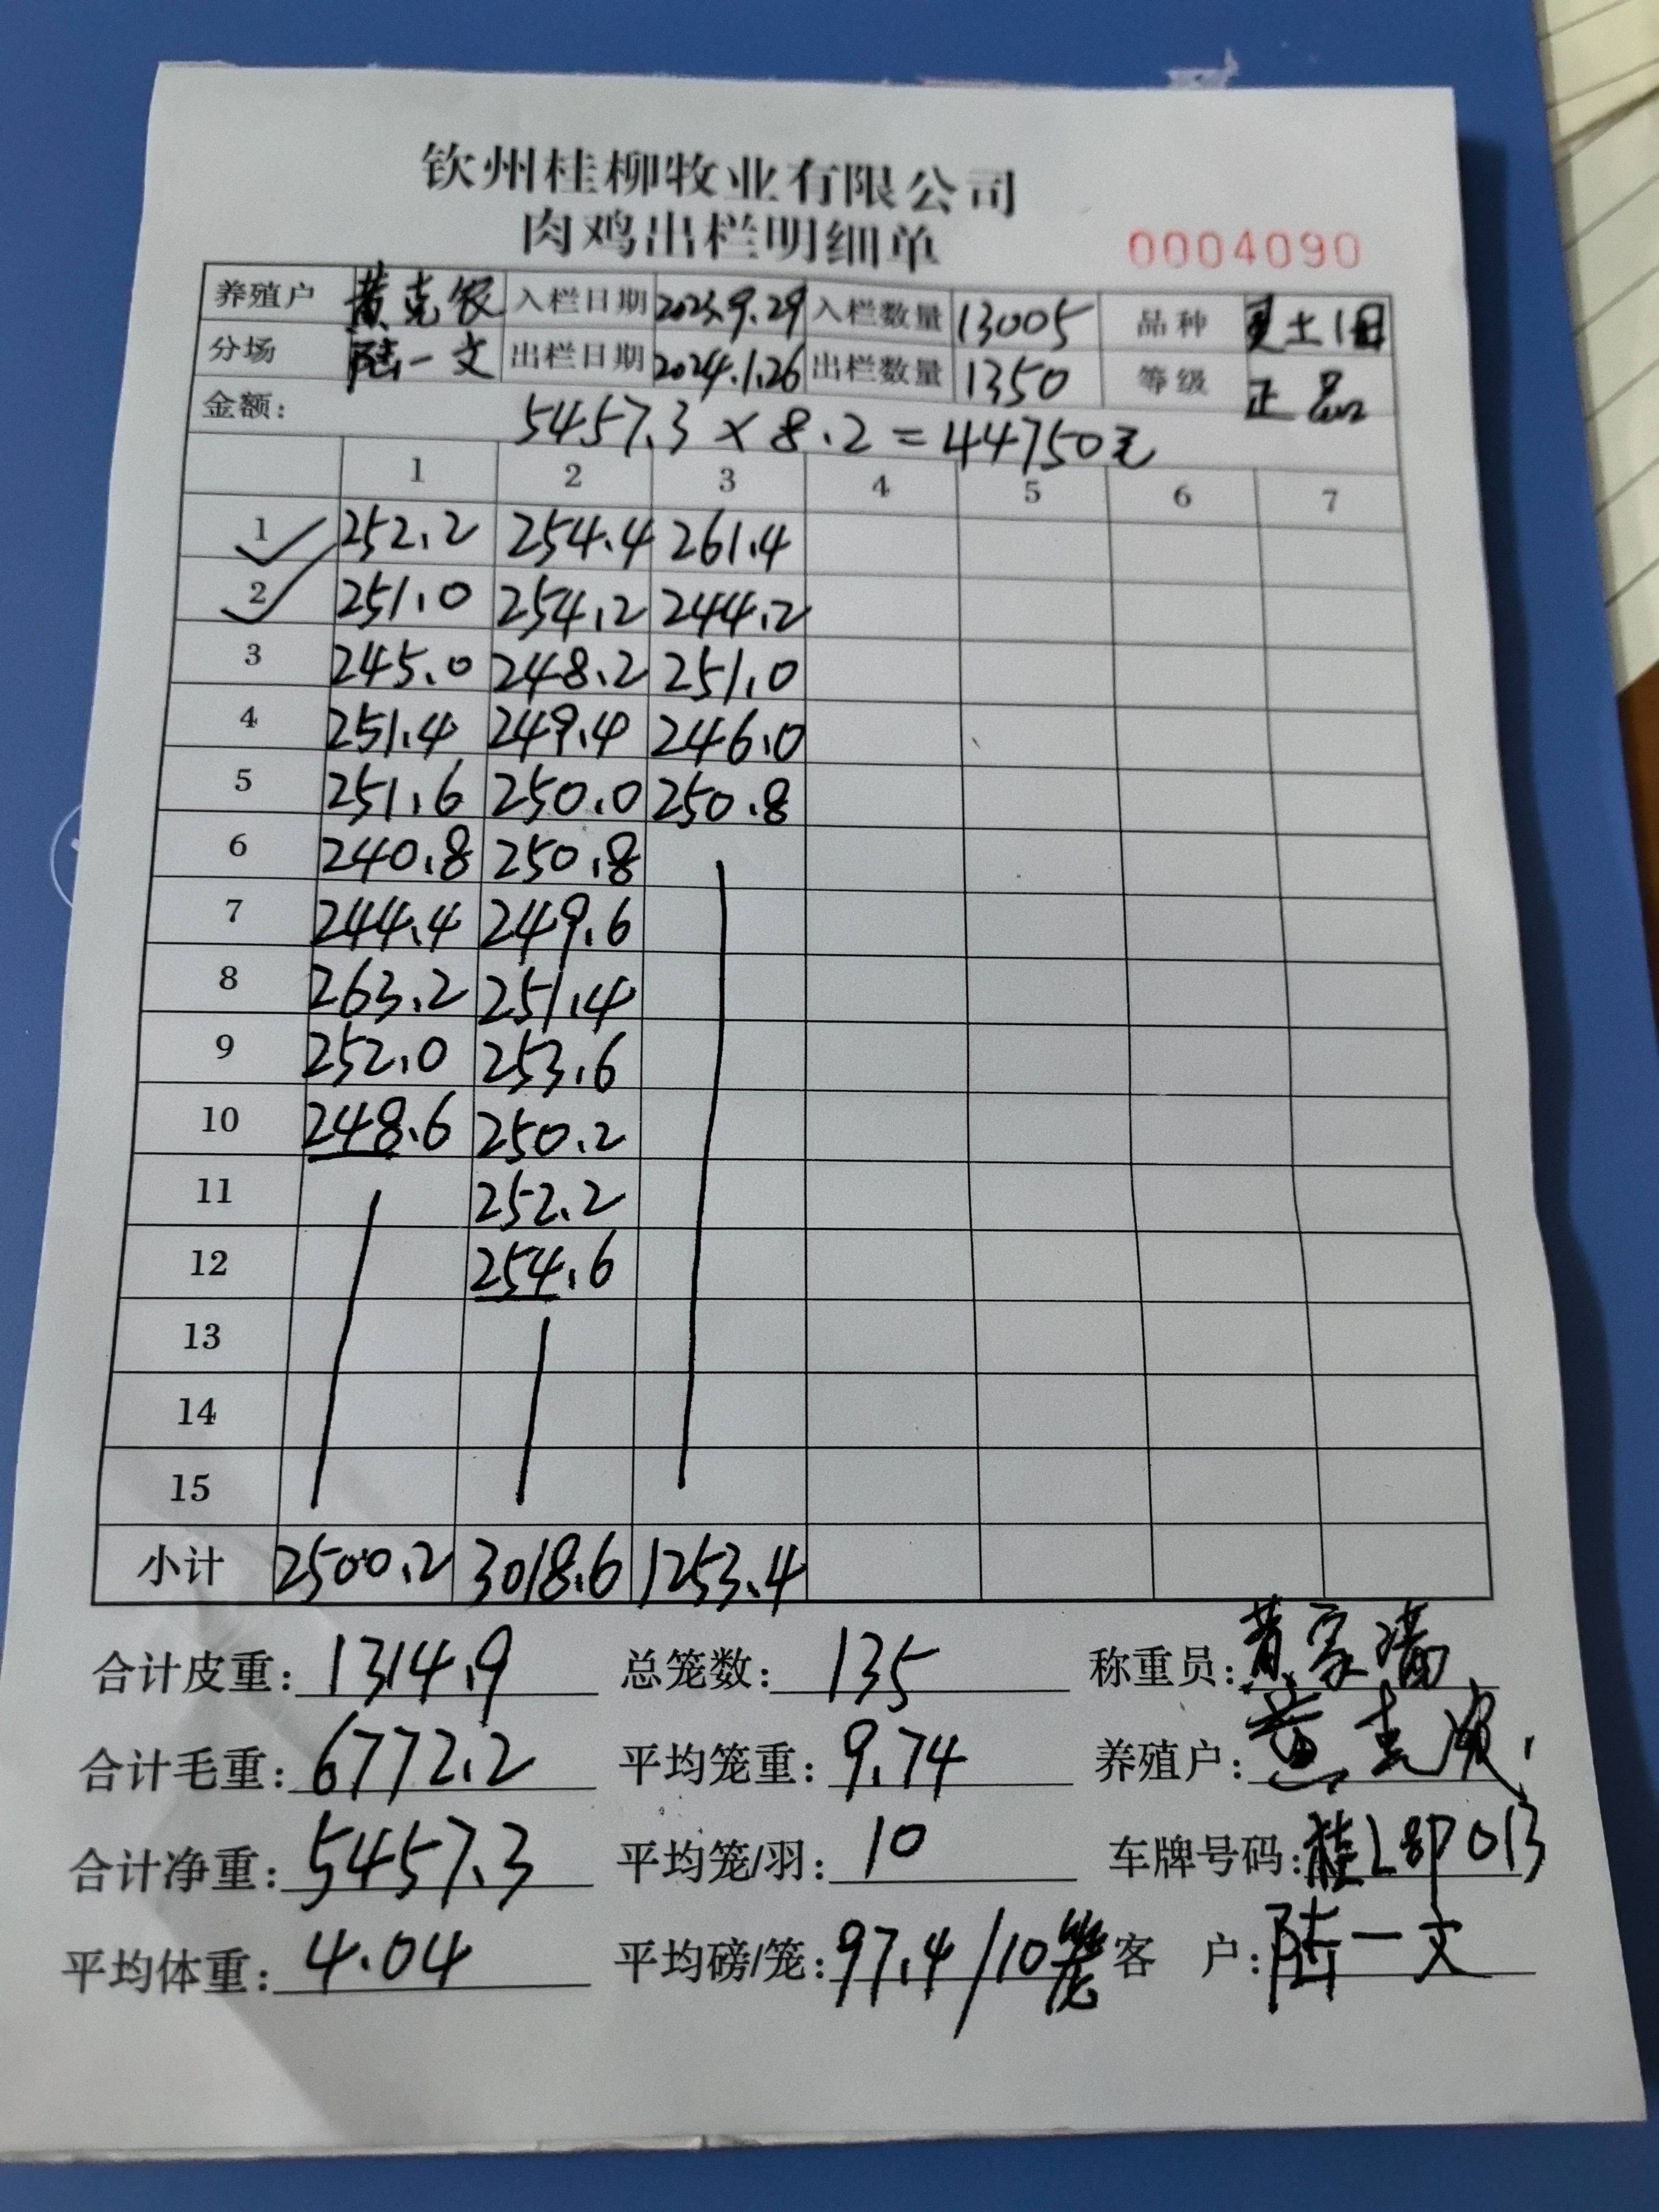 钦州桂柳牧业有限公司
肉鸡出栏明细单
0004090
养殖户 黄克农 入栏日期 2023.9.29 入栏数量 13005 品种 土
分场 陆一文 出栏日期 2024.1.26 出栏数量 1350 等级 正品
金额: 5457.3×8.2=44750元
1 2 3 4 5 6 7
1 252.2 254.4 261.4
2 251.0 254.2 244.2
3 245.0 248.2 251.0
4 251.4 249.4 246.0
5 251.6 250.0 250.8
6 240.8 250.8
7 244.4 249.6
8 263.2 251.4
9 252.0 253.6
10 248.6 250.2
11 252.2
12 254.6
13
14
15
小计 2500.2 3018.6 1253.4
合计皮重: 1314.9 总笼数: 135 称重员: 黄家
合计毛重: 6772.2 平均笼重: 9.74 养殖户: 黄克农
合计净重: 5457.3 平均笼/羽: 10 车牌号码: 桂L8P013
平均体重: 4.04 平均磅/笼: 97.4/10笼 客 户: 陆一文